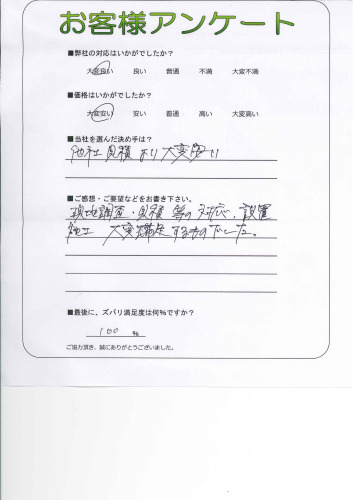 お客様アンケート
■弊社の対応はいかがでしたか?
大変良い 良い 普通 不満 大変不満
■価格はいかがでしたか?
大変安い 安い 普通 高い 大変高い
■当社を選んだ決め手は?
他社見積より大変安い
■ご感想・ご要望などをお書き下さい。
現地調査・見積等の対応、設置
施工 大変満足するものでした。
■最後に、ズバリ満足度は何%ですか?
100 %
ご協力頂き、誠にありがとうございました。